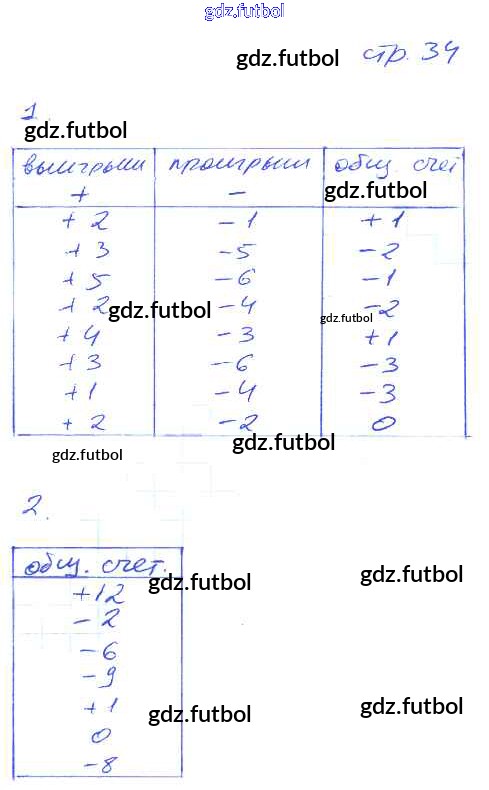 gdz.futbol
gdz.futbol стр. 34
1.
gdz.futbol
выигрыши проигрыши общ. счет
+ - gdz.futbol
+2 -1 +1
+3 -5 -2
+5 -6 -1
+2 gdz.futbol -4 gdz.futbol -2
+4 -3 +1
+3 -6 -3
+1 -4 -3
+2 -2 0
gdz.futbol gdz.futbol
2.
общ. счет.
gdz.futbol gdz.futbol
+12
-2
-6
-9
+1 gdz.futbol gdz.futbol
0
-8